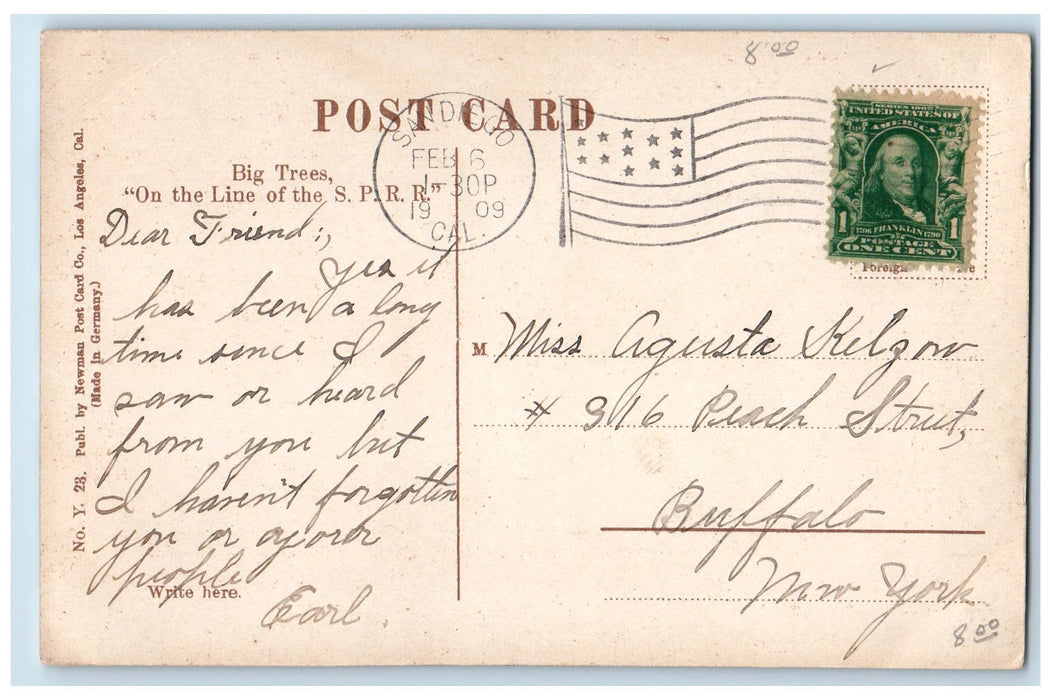 8.00
POST CARD
SAN DIEGO
FEB 6
1-30P
1909
CAL.
SERIES 1902
UNITED STATES OF
AMERICA
1 1
1706 FRANKLIN 1790
POSTAGE
ONE CENT
Foreign
Big Trees,
"On the Line of the S. P. R. R."
No. Y. 23. Publ. by Newman Post Card Co., Los Angeles, Cal.
(Made in Germany.)
Dear Friend:,
Yes it
has been a long
time since I
saw or heard
from you but
I haven't forgotten
you or
people
Write here.
Earl.
M Miss Agusta Kelzow
# 316 Peach Street,
Buffalo
New York
8.00